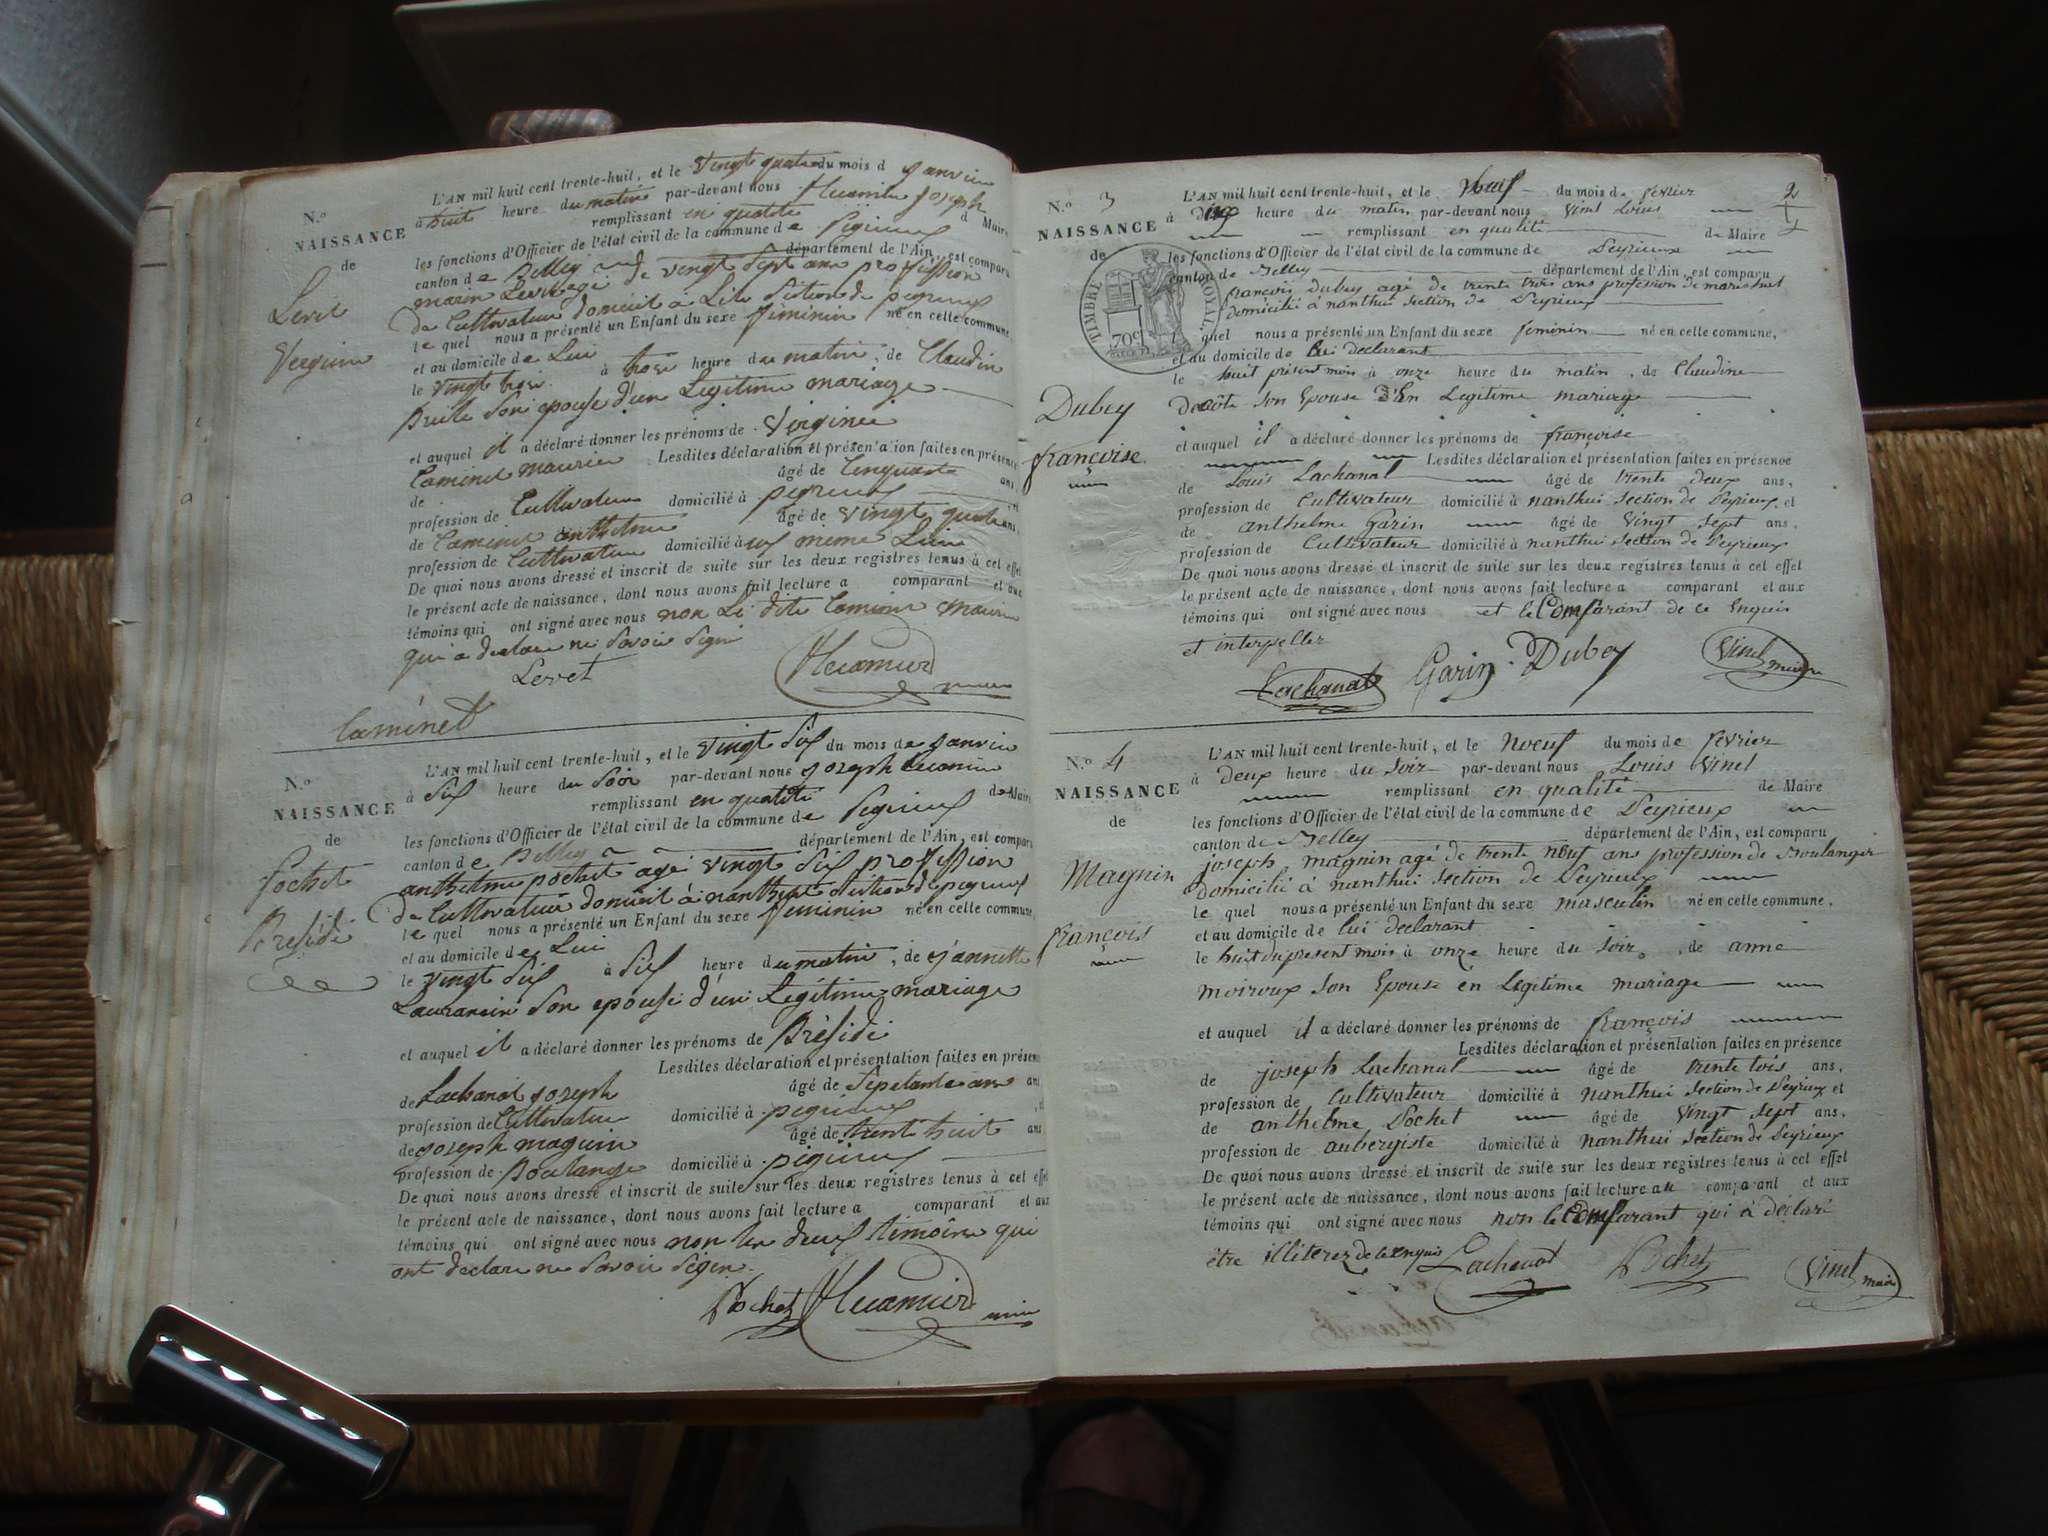 L'AN mil huit cent trente-huit, et le vingt quatre du mois d janvier
N.º à huit heure du matin par-devant nous joseph
NAISSANCE remplissant en qualité d Maire
de les fonctions d'Officier de l'état civil de la commune de
canton de Belley département de l'Ain, est comparu
marin Levet agé de vingt sept ans proffession
de Cultivateur
le quel nous a présenté un Enfant du sexe feminin né en cette commune,
et au domicile de Lui
le vingt trois à trose heure du matin, de Claudin
son epouse d'un Legitime mariage
Vergine
et auquel il a déclaré donner les prénoms de Virginie
Caminet maurice Lesdites déclaration et présentation faites en présence
de âgé de Cinquante ans,
profession de Cultivateur domicilié à et
de Caminet anthelme âgé de vingt quatre ans,
profession de Cultivateur domicilié à meme Lieu
De quoi nous avons dressé et inscrit de suite sur les deux registres tenus à cet effet
le présent acte de naissance, dont nous avons fait lecture a comparant et aux
témoins qui ont signé avec nous non Le dite Caminet maurice
qui a declare ne savoir signe
Levet
Caminet
L'AN mil huit cent trente-huit, et le vingt six du mois de janvier
N.º à six heure du soir par-devant nous joseph
NAISSANCE remplissant en qualité de Maire
de les fonctions d'Officier de l'état civil de la commune de
canton de Belley département de l'Ain, est comparu
Pochet anthelme pochet agé vingt six proffession
de Cultivateur
le quel nous a présenté un Enfant du sexe feminin né en cette commune,
Préside et au domicile de Lui
le vingt six à six heure du matin, de jannette
son epouse d'un Legitime mariage
et auquel il a déclaré donner les prénoms de Préside
Lesdites déclaration et présentation faites en présence
de Lachanat joseph âgé de Sepetante ans
profession de Cultivateur domicilié à
de joseph magnin âgé de trent huit ans
profession de Boulange domicilié à
De quoi nous avons dressé et inscrit de suite sur les deux registres tenus à cet effet
le présent acte de naissance, dont nous avons fait lecture a comparant et aux
témoins qui ont signé avec nous non les deux temoins qui
ont declare ne savoir signe
Pochet
L'AN mil huit cent trente-huit, et le Neuf du mois de fevrier 2
N.º 3 à dix heure du matin par-devant nous Vinet Louis
NAISSANCE remplissant en qualité de Maire
de les fonctions d'Officier de l'état civil de la commune de Peyrieux
canton de Belley département de l'Ain, est comparu
TIMBRE ROYAL
70c
françois Dubey agé de trente trois ans profession de
domicilié à nanthui section de Peyrieux
quel nous a présenté un Enfant du sexe feminin né en cette commune,
et au domicile de lui declarant
le huit présent mois à onze heure du matin, de Claudine
Dubey decôte son Epouse d'En Legitime mariage
et auquel il a déclaré donner les prénoms de françoise
françoise Lesdites déclaration et présentation faites en présence
de Louis Lachanal âgé de trente deux ans,
profession de Cultivateur domicilié à nanthui section de Peyrieux et
de anthelme Garin âgé de vingt sept ans,
profession de Cultivateur domicilié à nanthui section de Peyrieux
De quoi nous avons dressé et inscrit de suite sur les deux registres tenus à cet effet
le présent acte de naissance, dont nous avons fait lecture a comparant et aux
témoins qui ont signé avec nous et le Comparant de ce Enquis
et interpeller
Lachanal Garin Dubey Vinet maire
L'AN mil huit cent trente-huit, et le Noeuf du mois de fevrier
N.º 4 à deux heure du soir par-devant nous Louis Vinet
NAISSANCE remplissant en qualité de Maire
de les fonctions d'Officier de l'état civil de la commune de Peyrieux
canton de Belley département de l'Ain, est comparu
Magnin joseph magnin agé de trente neuf ans profession de Boulanger
domicilié à nanthui section de Peyrieux
le quel nous a présenté un Enfant du sexe masculin né en cette commune,
françois et au domicile de lui declarant
le huit du present mois à onze heure du soir, de anne
moiroux son Epouse en Légitime mariage
et auquel il a déclaré donner les prénoms de françois
Lesdites déclaration et présentation faites en présence
de joseph Lachanal âgé de trente tois ans,
profession de Cultivateur domicilié à nanthui section de Peyrieux et
de anthelme Pochet âgé de vingt sept ans,
profession de aubergiste domicilié à nanthui section de Peyrieux
De quoi nous avons dressé et inscrit de suite sur les deux registres tenus à cet effet
le présent acte de naissance, dont nous avons fait lecture au comparant et aux
témoins qui ont signé avec nous non le Comparant qui à déclaré
être illiterez de ce Enquis Lachanat Pochet Vinet maire